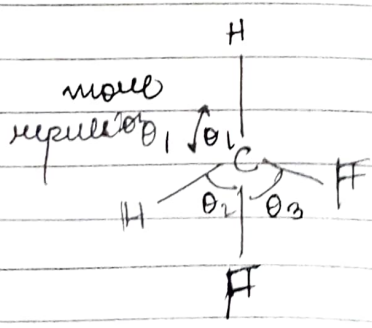 H
more
repulsion θ1 θ1
C
F
H θ2 θ3
F